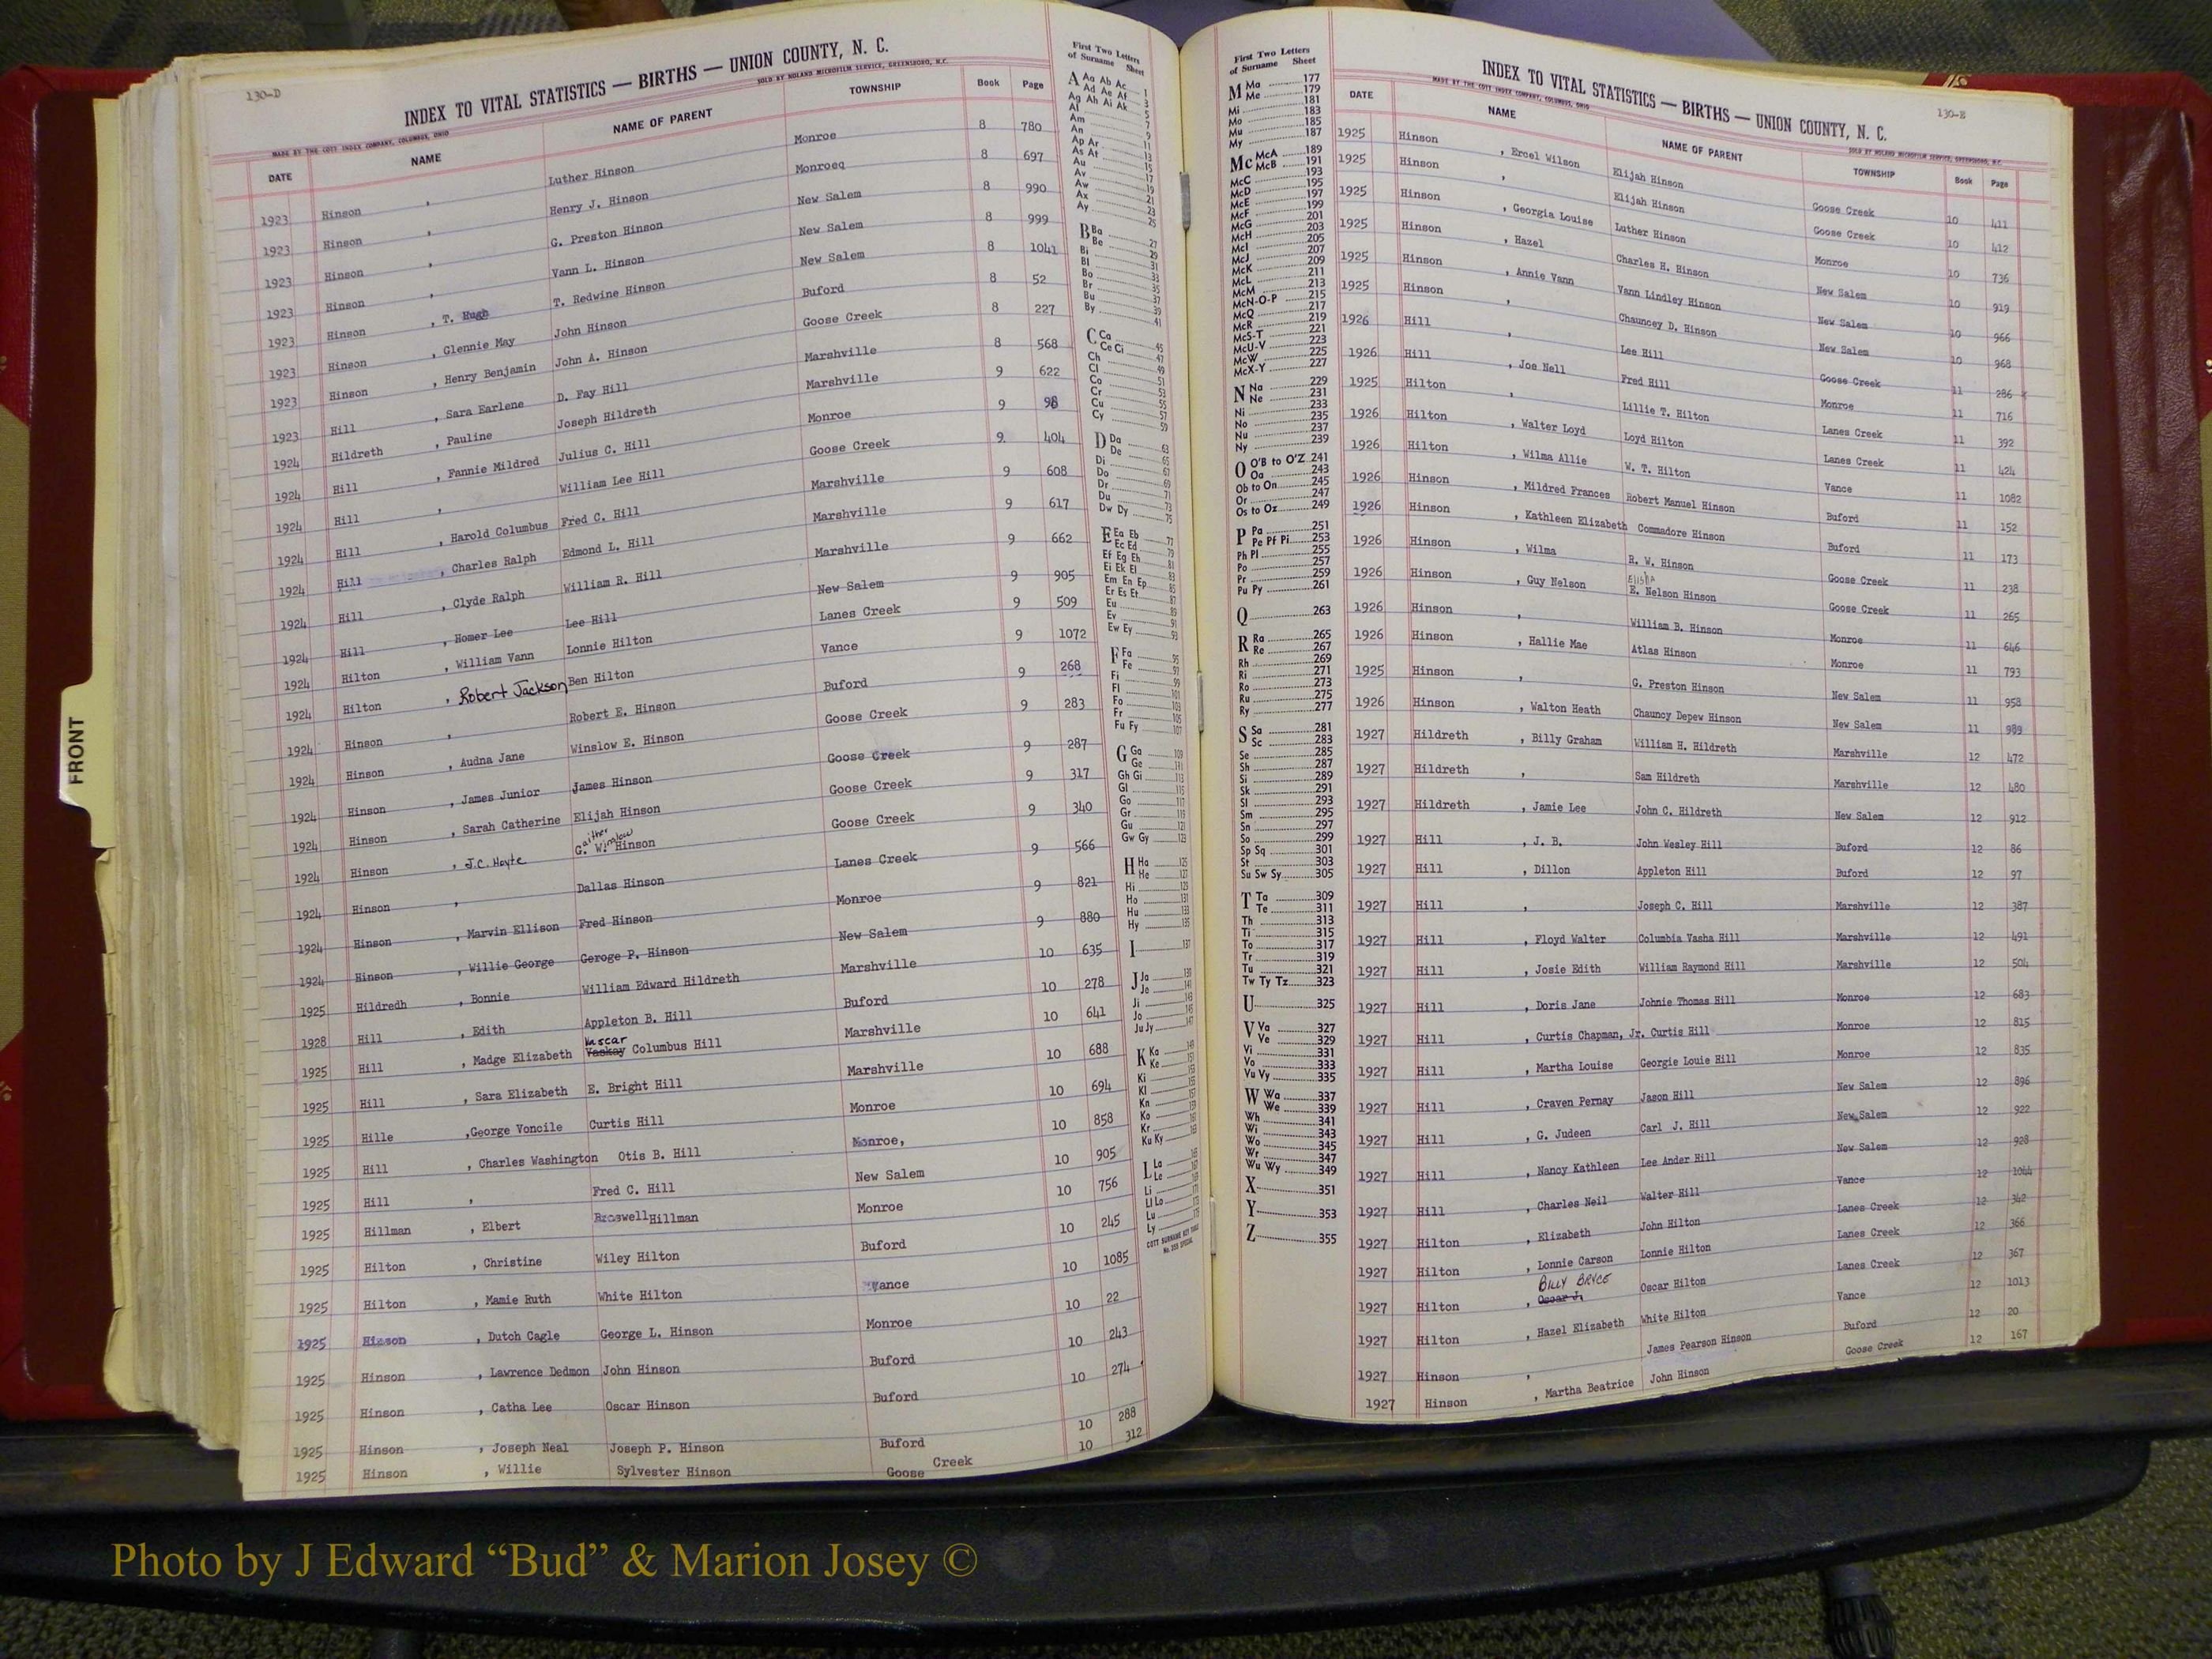 130-D
INDEX TO VITAL STATISTICS — BIRTHS — UNION COUNTY, N. C.
MADE BY THE COTT INDEX COMPANY, COLUMBUS, OHIO
SOLD BY NOLAND MICROFILM SERVICE, GREENSBORO, N.C.
DATE NAME NAME OF PARENT TOWNSHIP Book Page
1923 Hinson , Luther Hinson Monroe 8 780
1923 Hinson , Henry J. Hinson Monroeq 8 697
1923 Hinson , G. Preston Hinson New Salem 8 990
1923 Hinson , Vann L. Hinson New Salem 8 999
1923 Hinson , T. Hugh T. Redwine Hinson New Salem 8 1041
1923 Hinson , Glennie May John Hinson Buford 8 52
1923 Hinson , Henry Benjamin John A. Hinson Goose Creek 8 227
1923 Hill , Sara Earlene D. Fay Hill Marshville 8 568
1924 Hildreth , Pauline Joseph Hildreth Marshville 9 622
1924 Hill , Fannie Mildred Julius C. Hill Monroe 9 98
1924 Hill , William Lee Hill Goose Creek 9 404
1924 Hill , Harold Columbus Fred C. Hill Marshville 9 608
1924 Hill , Charles Ralph Edmond L. Hill Marshville 9 617
1924 Hill , Clyde Ralph William R. Hill Marshville 9 662
1924 Hill , Homer Lee Lee Hill New Salem 9 905
1924 Hilton , William Vann Lonnie Hilton Lanes Creek 9 509
1924 Hilton , Robert Jackson Ben Hilton Vance 9 1072
1924 Hinson , Robert E. Hinson Buford 9 268
1924 Hinson , Audna Jane Winslow E. Hinson Goose Creek 9 283
1924 Hinson , James Junior James Hinson Goose Creek 9 287
1924 Hinson , Sarah Catherine Elijah Hinson Goose Creek 9 317
aither Winslow
1924 Hinson , J.C. Hoyte G. W. Hinson Goose Creek 9 340
1924 Hinson , Dallas Hinson Lanes Creek 9 566
1924 Hinson , Marvin Ellison Fred Hinson Monroe 9 821
1924 Hinson , Willie George Geroge P. Hinson New Salem 9 880
1925 Hildredh , Bonnie William Edward Hildreth Marshville 10 635
1928 Hill , Edith Appleton B. Hill Buford 10 278
1925 Hill , Madge Elizabeth Vaskay Columbus Hill Marshville 10 641
1925 Hill , Sara Elizabeth E. Bright Hill Marshville 10 688
1925 Hille ,George Voncile Curtis Hill Monroe 10 694
1925 Hill , Charles Washington Otis B. Hill Monroe, 10 858
1925 Hill , Fred C. Hill New Salem 10 905
1925 Hillman , Elbert Braswell Hillman Monroe 10 756
1925 Hilton , Christine Wiley Hilton Buford 10 245
1925 Hilton , Mamie Ruth White Hilton Vance 10 1085
1925 Hinson , Dutch Cagle George L. Hinson Monroe 10 22
1925 Hinson , Lawrence Dedmon John Hinson Buford 10 243
1925 Hinson , Catha Lee Oscar Hinson Buford 10 274
1925 Hinson , Joseph Neal Joseph P. Hinson Buford 10 288
1925 Hinson , Willie Sylvester Hinson Goose Creek 10 312
FRONT
First Two Letters
of Surname Sheet
A Aa Ab Ac 1
Ad Ae Af 3
Ag Ah Ai Ak 5
Al 7
Am 9
An 11
Ap Ar 13
As At 15
Au 17
Av 19
Aw 21
Ax 23
Ay 25
B Ba 27
Be 29
Bi 31
Bl 33
Bo 35
Br 37
Bu 39
By 41
C Ca 45
Ce Ci 47
Ch 49
Cl 51
Co 53
Cr 55
Cu 57
Cy 59
D Da 63
De 65
Di 67
Do 69
Dr 71
Du 73
Dw Dy 75
E Ea Eb 77
Ec Ed 79
Ef Eg Eh 81
Ei Ek El 83
Em En Ep 85
Er Es Et 87
Eu 89
Ev 91
Ew Ey 93
F Fa 95
Fe 97
Fi 99
Fl 101
Fo 103
Fr 105
Fu Fy 107
G Ga 109
Ge 111
Gh Gi 113
Gl 115
Go 117
Gr 119
Gu 121
Gw Gy 123
H Ha 125
He 127
Hi 129
Ho 131
Hu 133
Hy 135
I 137
J Ja 139
Je 141
Ji 143
Jo 145
Ju Jy 147
K Ka 149
Ke
Ki
Kl
Kn
Ko
Kr
Ku Ky
L La
Le
Li
Ll Lo
Lu
Ly
COTT SURNAME KEY TABLE
First Two Letters
of Surname Sheet
M Ma 177
Me 179
Mi 181
Mo 183
Mu 185
My 187
Mc McA 189
McB 191
McC 193
McD 195
McE 197
McF 199
McG 201
McH 203
McI 205
McJ 207
McK 209
McL 211
McM 213
McN-O-P 215
McQ 217
McR 219
McS-T 221
McU-V 223
McW 225
McX-Y 227
N Na 229
Ne 231
Ni 233
No 235
Nu 237
Ny 239
O O'B to O'Z 241
Oa 243
Ob to On 245
Or 247
Os to Oz 249
P Pa 251
Pe Pf Pi 253
Ph Pl 255
Po 257
Pr 259
Pu Py 261
Q 263
R Ra 265
Re 267
Rh 269
Ri 271
Ro 273
Ru 275
Ry 277
S Sa 281
Sc 283
Se 285
Sh 287
Si 289
Sk 291
Sl 293
Sm 295
Sn 297
So 299
Sp Sq 301
St 303
Su Sw Sy 305
T Ta 309
Te 311
Th 313
Ti 315
To 317
Tr 319
Tu 321
Tw Ty Tz 323
U 325
V Va 327
Ve 329
Vi 331
Vo 333
Vu Vy 335
W Wa 337
We 339
Wh 341
Wi 343
Wo 345
Wr 347
Wu Wy 349
X 351
Y 353
Z 355
130-E
INDEX TO VITAL STATISTICS — BIRTHS — UNION COUNTY, N. C.
MADE BY THE COTT INDEX COMPANY, COLUMBUS, OHIO
SOLD BY NOLAND MICROFILM SERVICE, GREENSBORO, N.C.
DATE NAME NAME OF PARENT TOWNSHIP Book Page
1925 Hinson , Ercel Wilson Elijah Hinson Goose Creek 10 411
1925 Hinson , Elijah Hinson Goose Creek 10 412
1925 Hinson , Georgia Louise Luther Hinson Monroe 10 736
1925 Hinson , Hazel Charles H. Hinson New Salem 10 919
1925 Hinson , Annie Vann Vann Lindley Hinson New Salem 10 966
1925 Hinson , Chauncey D. Hinson New Salem 10 968
1926 Hill , Lee Hill Goose Creek 11 286 x
1926 Hill , Joe Nell Fred Hill Monroe 11 716
1925 Hilton , Lillie T. Hilton Lanes Creek 11 392
1926 Hilton , Walter Loyd Loyd Hilton Lanes Creek 11 424
1926 Hilton , Wilma Allie W. T. Hilton Vance 11 1082
1926 Hinson , Mildred Frances Robert Manuel Hinson Buford 11 152
1926 Hinson , Kathleen Elizabeth Commadore Hinson Buford 11 173
1926 Hinson , Wilma R. W. Hinson Goose Creek 11 238
Elisha
1926 Hinson , Guy Nelson E. Nelson Hinson Goose Creek 11 265
1926 Hinson , William B. Hinson Monroe 11 646
1926 Hinson , Hallie Mae Atlas Hinson Monroe 11 793
1925 Hinson , G. Preston Hinson New Salem 11 958
1926 Hinson , Walton Heath Chauncy Depew Hinson New Salem 11 989
1927 Hildreth , Billy Graham William H. Hildreth Marshville 12 472
1927 Hildreth , Sam Hildreth Marshville 12 480
1927 Hildreth , Jamie Lee John C. Hildreth New Salem 12 912
1927 Hill , J. B. John Wesley Hill Buford 12 86
1927 Hill , Dillon Appleton Hill Buford 12 97
1927 Hill , Joseph C. Hill Marshville 12 387
1927 Hill , Floyd Walter Columbia Vasha Hill Marshville 12 491
1927 Hill , Josie Edith William Raymond Hill Marshville 12 504
1927 Hill , Doris Jane Johnie Thomas Hill Monroe 12 683
1927 Hill , Curtis Chapman, Jr. Curtis Hill Monroe 12 815
1927 Hill , Martha Louise Georgie Louie Hill Monroe 12 835
1927 Hill , Craven Pernay Jason Hill New Salem 12 896
1927 Hill , G. Judeen Carl J. Hill New Salem 12 922
1927 Hill , Nancy Kathleen Lee Ander Hill New Salem 12 928
1927 Hill , Charles Neil Walter Hill Vance 12 1044
1927 Hilton , Elizabeth John Hilton Lanes Creek 12 342
1927 Hilton , Lonnie Carson Lonnie Hilton Lanes Creek 12 366
BILLY BRYCE
1927 Hilton , Oscar J. Oscar Hilton Lanes Creek 12 367
1927 Hilton , Hazel Elizabeth White Hilton Vance 12 1013
1927 Hinson , James Pearson Hinson Buford 12 20
1927 Hinson , Martha Beatrice John Hinson Goose Creek 12 167
Photo by J Edward “Bud” & Marion Josey ©